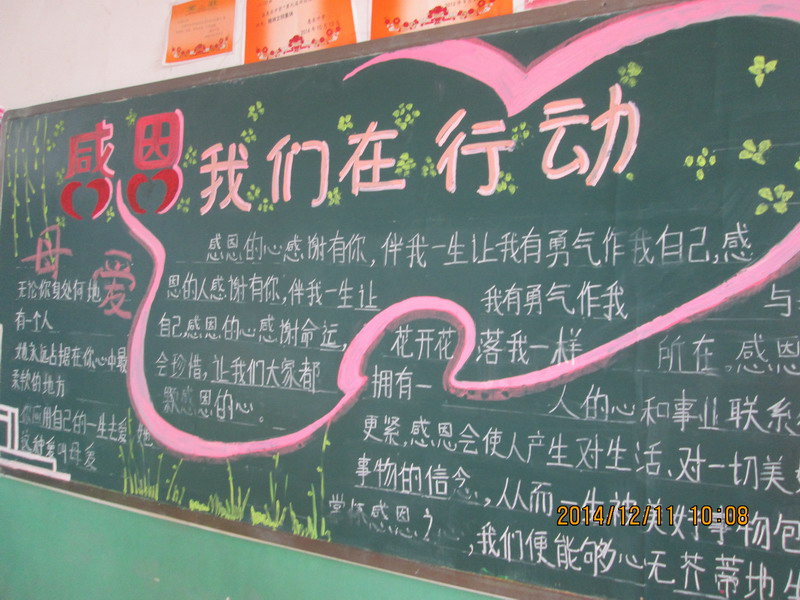 感恩 我们在行动
母爱
无论你身处何地
有一个人
她永远占据在你心中最
柔软的地方
你应用自己的一生去爱她
这种爱叫母爱
感恩的心感谢有你,伴我一生让我有勇气作我自己,感
恩的人感谢有你,伴我一生让 我有勇气作我
自己,感恩的心感谢命运, 花开花落我一样
会珍惜,让我们大家都 拥有一
颗感恩的心。
与
所在。感恩
人的心和事业联系
更紧,感恩会使人产生对生活、对一切美
事物的信念,从而一生被美好事物包
常怀感恩之心,我们便能够心无芥蒂地
2014/12/11 10:08